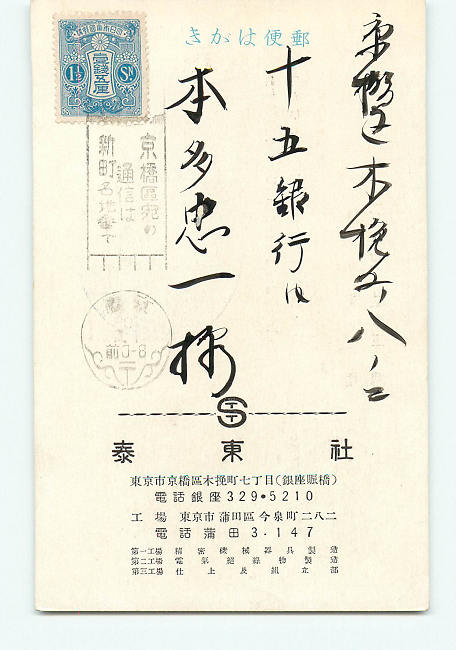 郵便はがき
大日本帝國郵便
壹錢五厘
1½ Sn
京橋區木挽町八ノ二
十五銀行内
本多忠一様
京橋區宛の
通信は
新町名地番で
前0-8
泰東社
東京市京橋區木挽町七丁目(銀座賑橋)
電話銀座329•5210
工場 東京市蒲田區今泉町二八二
電話蒲田3·147
第一工場 精密機械器具製造
第二工場 電氣絕緣物製造
第三工場 仕上及組立部